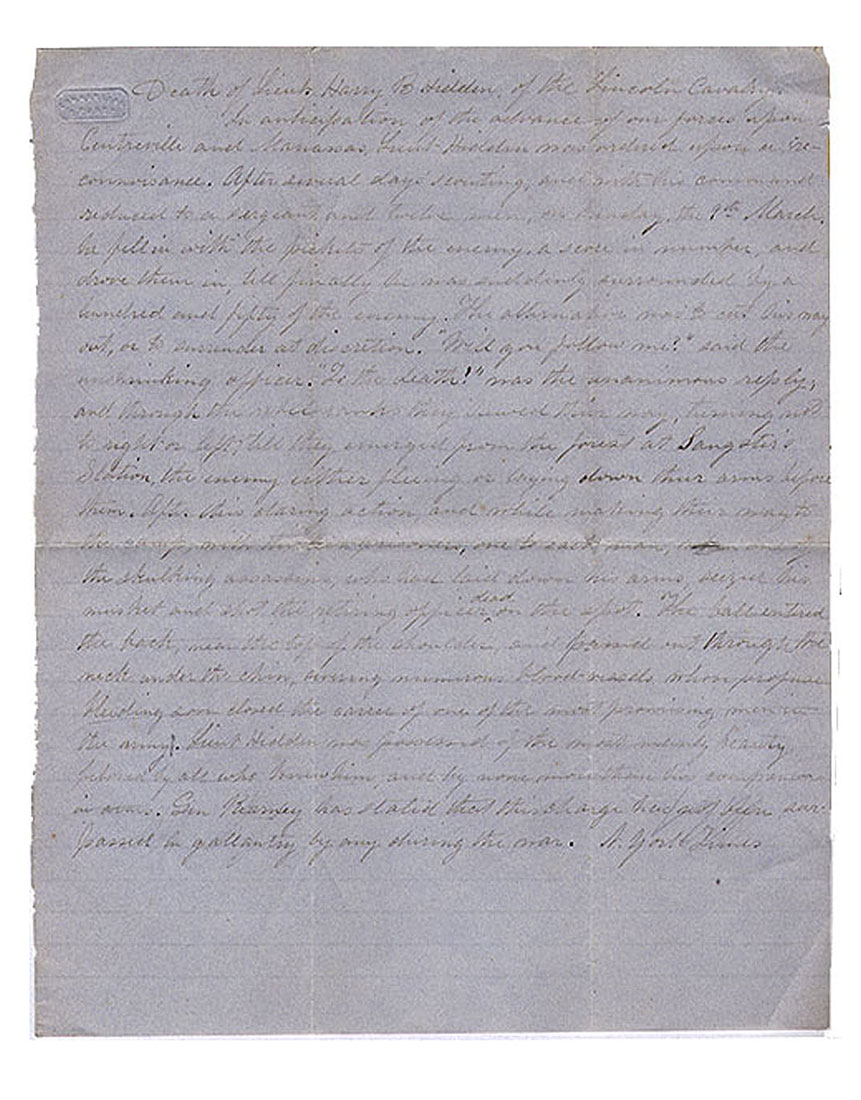 Death of Lieut Harry B Hidden, of the Lincoln Cavalry.
In anticipation of the advance of our forces upon
Centreville and Manassas, Lieut Hidden was ordered upon a re-
connoisance. After several days scouting, and with his command
reduced to a sergeant and twelve men, on Sunday, the 9th March,
he fell in with the pickets of the enemy, a score in number, and
drove them in, till finally he was suddenly surrounded by a
hundred and fifty of the enemy. The alternative was to cut his way
out, or to surrender at discretion. "Will you follow me?" said the
unshrinking officer. "To the death!" was the unanimous reply,
and through the rebel ranks they hewed their way, turning not
to right or left, till they emerged from the forest at Sangster's
Station, the enemy either fleeing or laying down their arms before
them. After this daring action, and while making their way to
the camp, with thirteen prisoners, one to each man, one of
the skulking assassins, who had laid down his arms, seized his
musket and shot the retiring officer dead on the spot. The ball entered
the back, near the top of the shoulder, and passed out through the
neck under the chin, severing numerous blood-vessels whose profuse
bleeding soon closed the career of one of the most promising men in
the army. Lieut Hidden was possessed of the most manly beauty,
beloved by all who knew him, and by none more than his companions
in arms. Gen Kearney has stated that this charge has not been sur-
passed in gallantry by any during the war. N. York Times